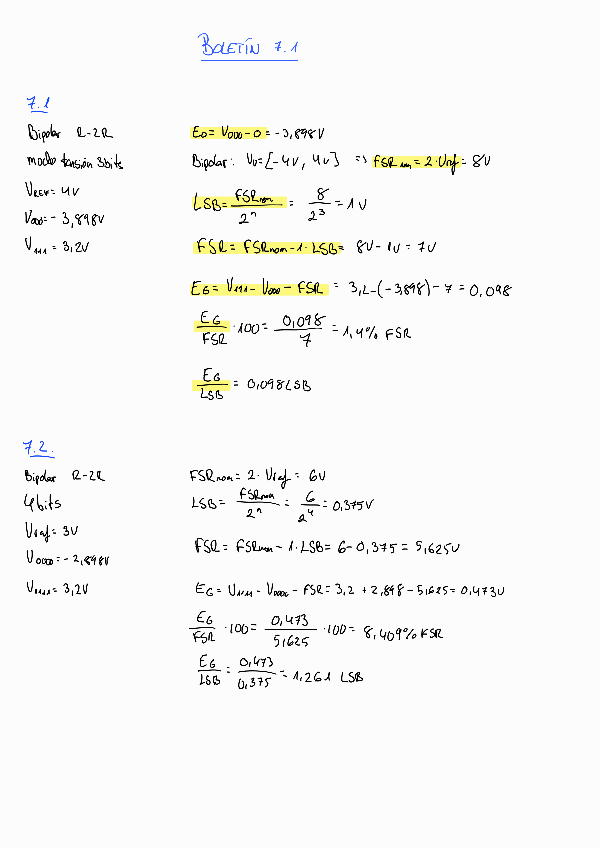 BOLETÍN 7.1
7.1
Bipolar R-2R
modo tensión 3bits
VREF = 4V
V000 = - 3,898V
V111 = 3,2V
EO = V000 - 0 = -3,898V
Bipolar: Vv = [-4V, 4V] => FSRnom = 2·Vref = 8V
LSB = FSRnom / 2^n = 8 / 2^3 = 1V
FSR = FSRnom - 1·LSB = 8V - 1V = 7V
EG = V111 - V000 - FSR = 3,2 - (-3,898) - 7 = 0,098
EG / FSR · 100 = 0,098 / 7 = 1,4% FSR
EG / LSB = 0,098 LSB
7.2.
Bipolar R-2R
4bits
Vref = 3V
V0000 = - 2,898V
V1111 = 3,2V
FSRnom = 2·Vref = 6V
LSB = FSRnom / 2^n = 6 / 2^4 = 0,375V
FSR = FSRnom - 1·LSB = 6 - 0,375 = 5,625V
EG = V1111 - V0000 - FSR = 3,2 + 2,898 - 5,625 = 0,473V
EG / FSR · 100 = 0,473 / 5,625 · 100 = 8,409% FSR
EG / LSB = 0,473 / 0,375 = 1,261 LSB